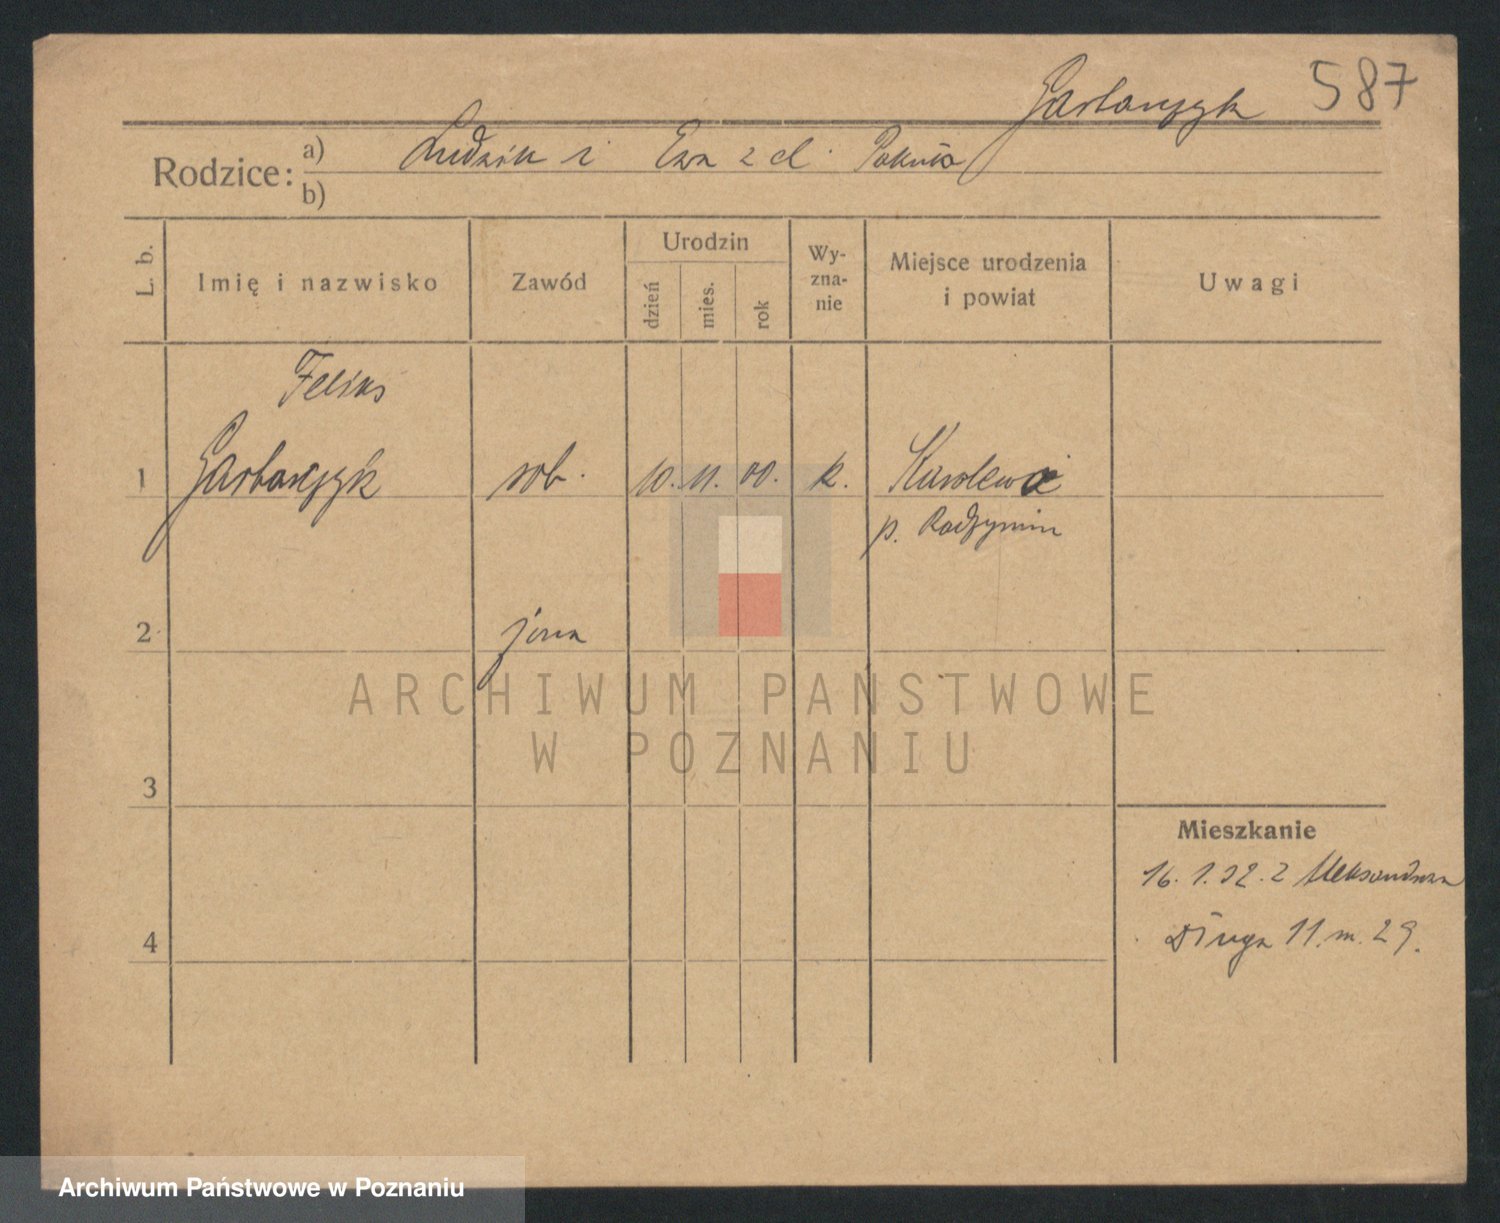 Garbarczyk 587
Rodzice: a) Ludwik i Ewa z d. Pakuła
b)
L. b. Imię i nazwisko Zawód Urodzin dzień mies. rok Wy-zna-nie Miejsce urodzenia i powiat Uwagi
Feliks
1 Garbarczyk rob. 10. 11. 00. k. Karolew
p. Radzymin
2
3
4
Mieszkanie
16. 1. 32. z Aleksandrowa
Długa 11. m. 29.
ARCHIWUM PAŃSTWOWE
W POZNANIU
Archiwum Państwowe w Poznaniu